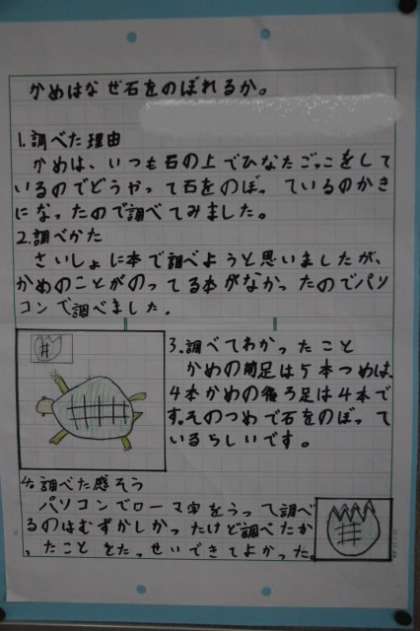 かめはなぜ石をのぼれるか。
1.調べた理由
かめは、いつも石の上でひなたごっこをして
いるのでどうやって石をのぼっているのかき
になったので調べてみました。
2.調べかた
さいしょに本で調べようと思いましたが、
かめのことがのってる本がなかったのでパソ
コンで調べました.
3.調べてわかったこと
かめの前足は5本つめは
4本かめの後ろ足は4本で
す。そのつめで石をのぼって
いるらしいです。
4.調べた感そう
パソコンでローマ字をうって調べ
るのはむずかしかったけど調べたか
ったことをたっせいできてよかった。